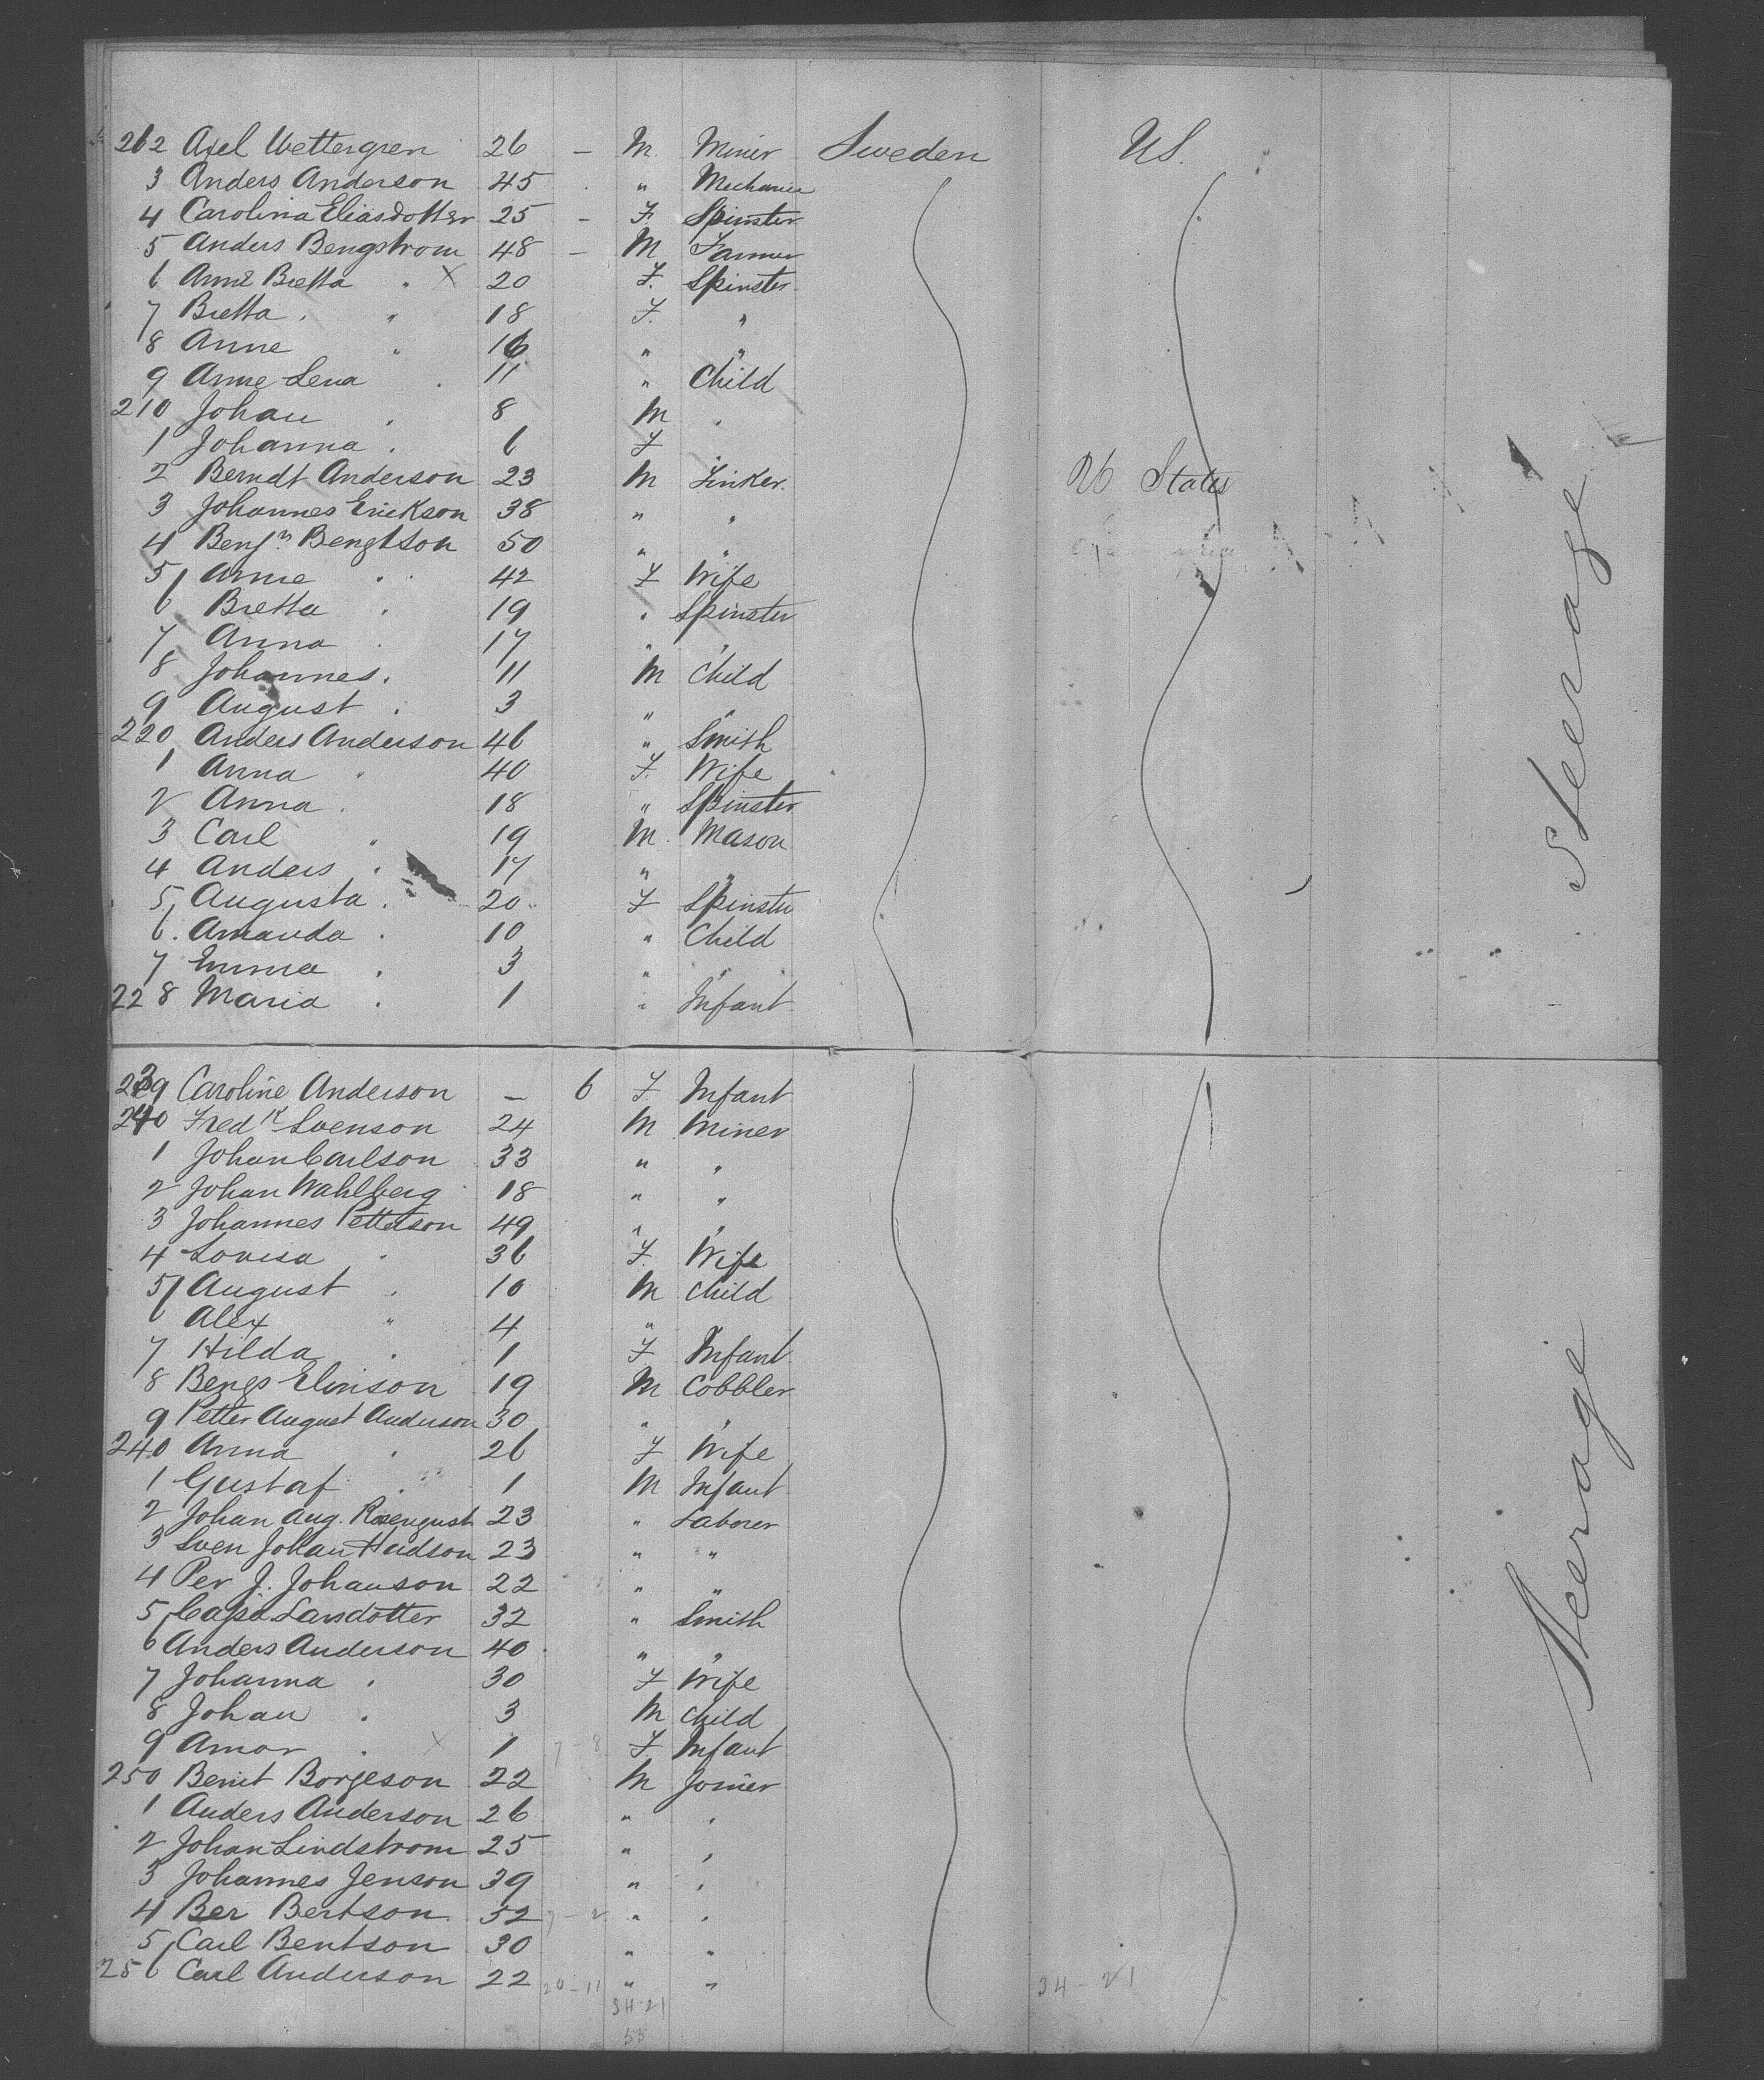 262 Axel Wettergren 26 — M. Miner Sweden US.
3 Anders Anderson 45 " Mechanic
4 Carolina Eliasdotter 25 — F. Spinster
5 Anders Bengstrom 48 — M Farmer
6 Anne Bretta " X 20 F. Spinster
7 Bretta " 18 F. "
8 Anne " 16 " "
9 Anne Lena " 11 " Child
210 Johan " 8 M "
1 Johanna " 6 F "
2 Berndt Anderson 23 M Tinker. U States
3 Johannes Erickson 38 " "
4 Benjn Bengtson 50 " "
5 Anne " 42 F Wife
6 Bretta " 19 " Spinster
7 Anna " 17 " "
8 Johannes " 11 M Child
9 August " 3 " "
220 Anders Anderson 46 " Smith
1 Anna " 40 F. Wife
2 Anna " 18 " Spinster
3 Carl " 19 M. Mason
4 Anders " 17 " "
5 Augusta " 20 F Spinster
6 Amanda " 10 " Child
7 Emma " 3 " "
228 Maria " 1 " Infant
Steerage
239 Caroline Anderson — 6 F Infant
240 Fredk Svenson 24 M Miner
1 Johan Carlson 33 " "
2 Johan Wahlberg 18 " "
3 Johannes Petterson 49 " "
4 Lovisa " 36 F. Wife
5 August " 10 M Child
6 Alex " 4 " "
7 Hilda " 1 F Infant
8 Bengs Elinson 19 M Cobbler
9 Petter August Anderson 30 " "
240 Anna " 26 F Wife
1 Gustaf " 1 M Infant
2 Johan Aug. 23 " Laborer
3 Sven Johan 23 " "
4 Per J. Johanson 22 " "
5 Cajsa Larsdotter 32 " Smith
6 Anders Anderson 40 " "
7 Johanna " 30 F Wife
8 Johan " 3 M Child
9 Amor " X 1 7-8 F Infant
250 Bernt Borjeson 22 M Joiner
1 Anders Anderson 26 " "
2 Johan Lindstrom 25 " "
3 Johannes Jenson 39 " "
4 Ber Bertson 52 7-2 " "
5 Carl Bentson 30 " "
256 Carl Anderson 22 20-11 " " 34-21
34-21
55
Steerage